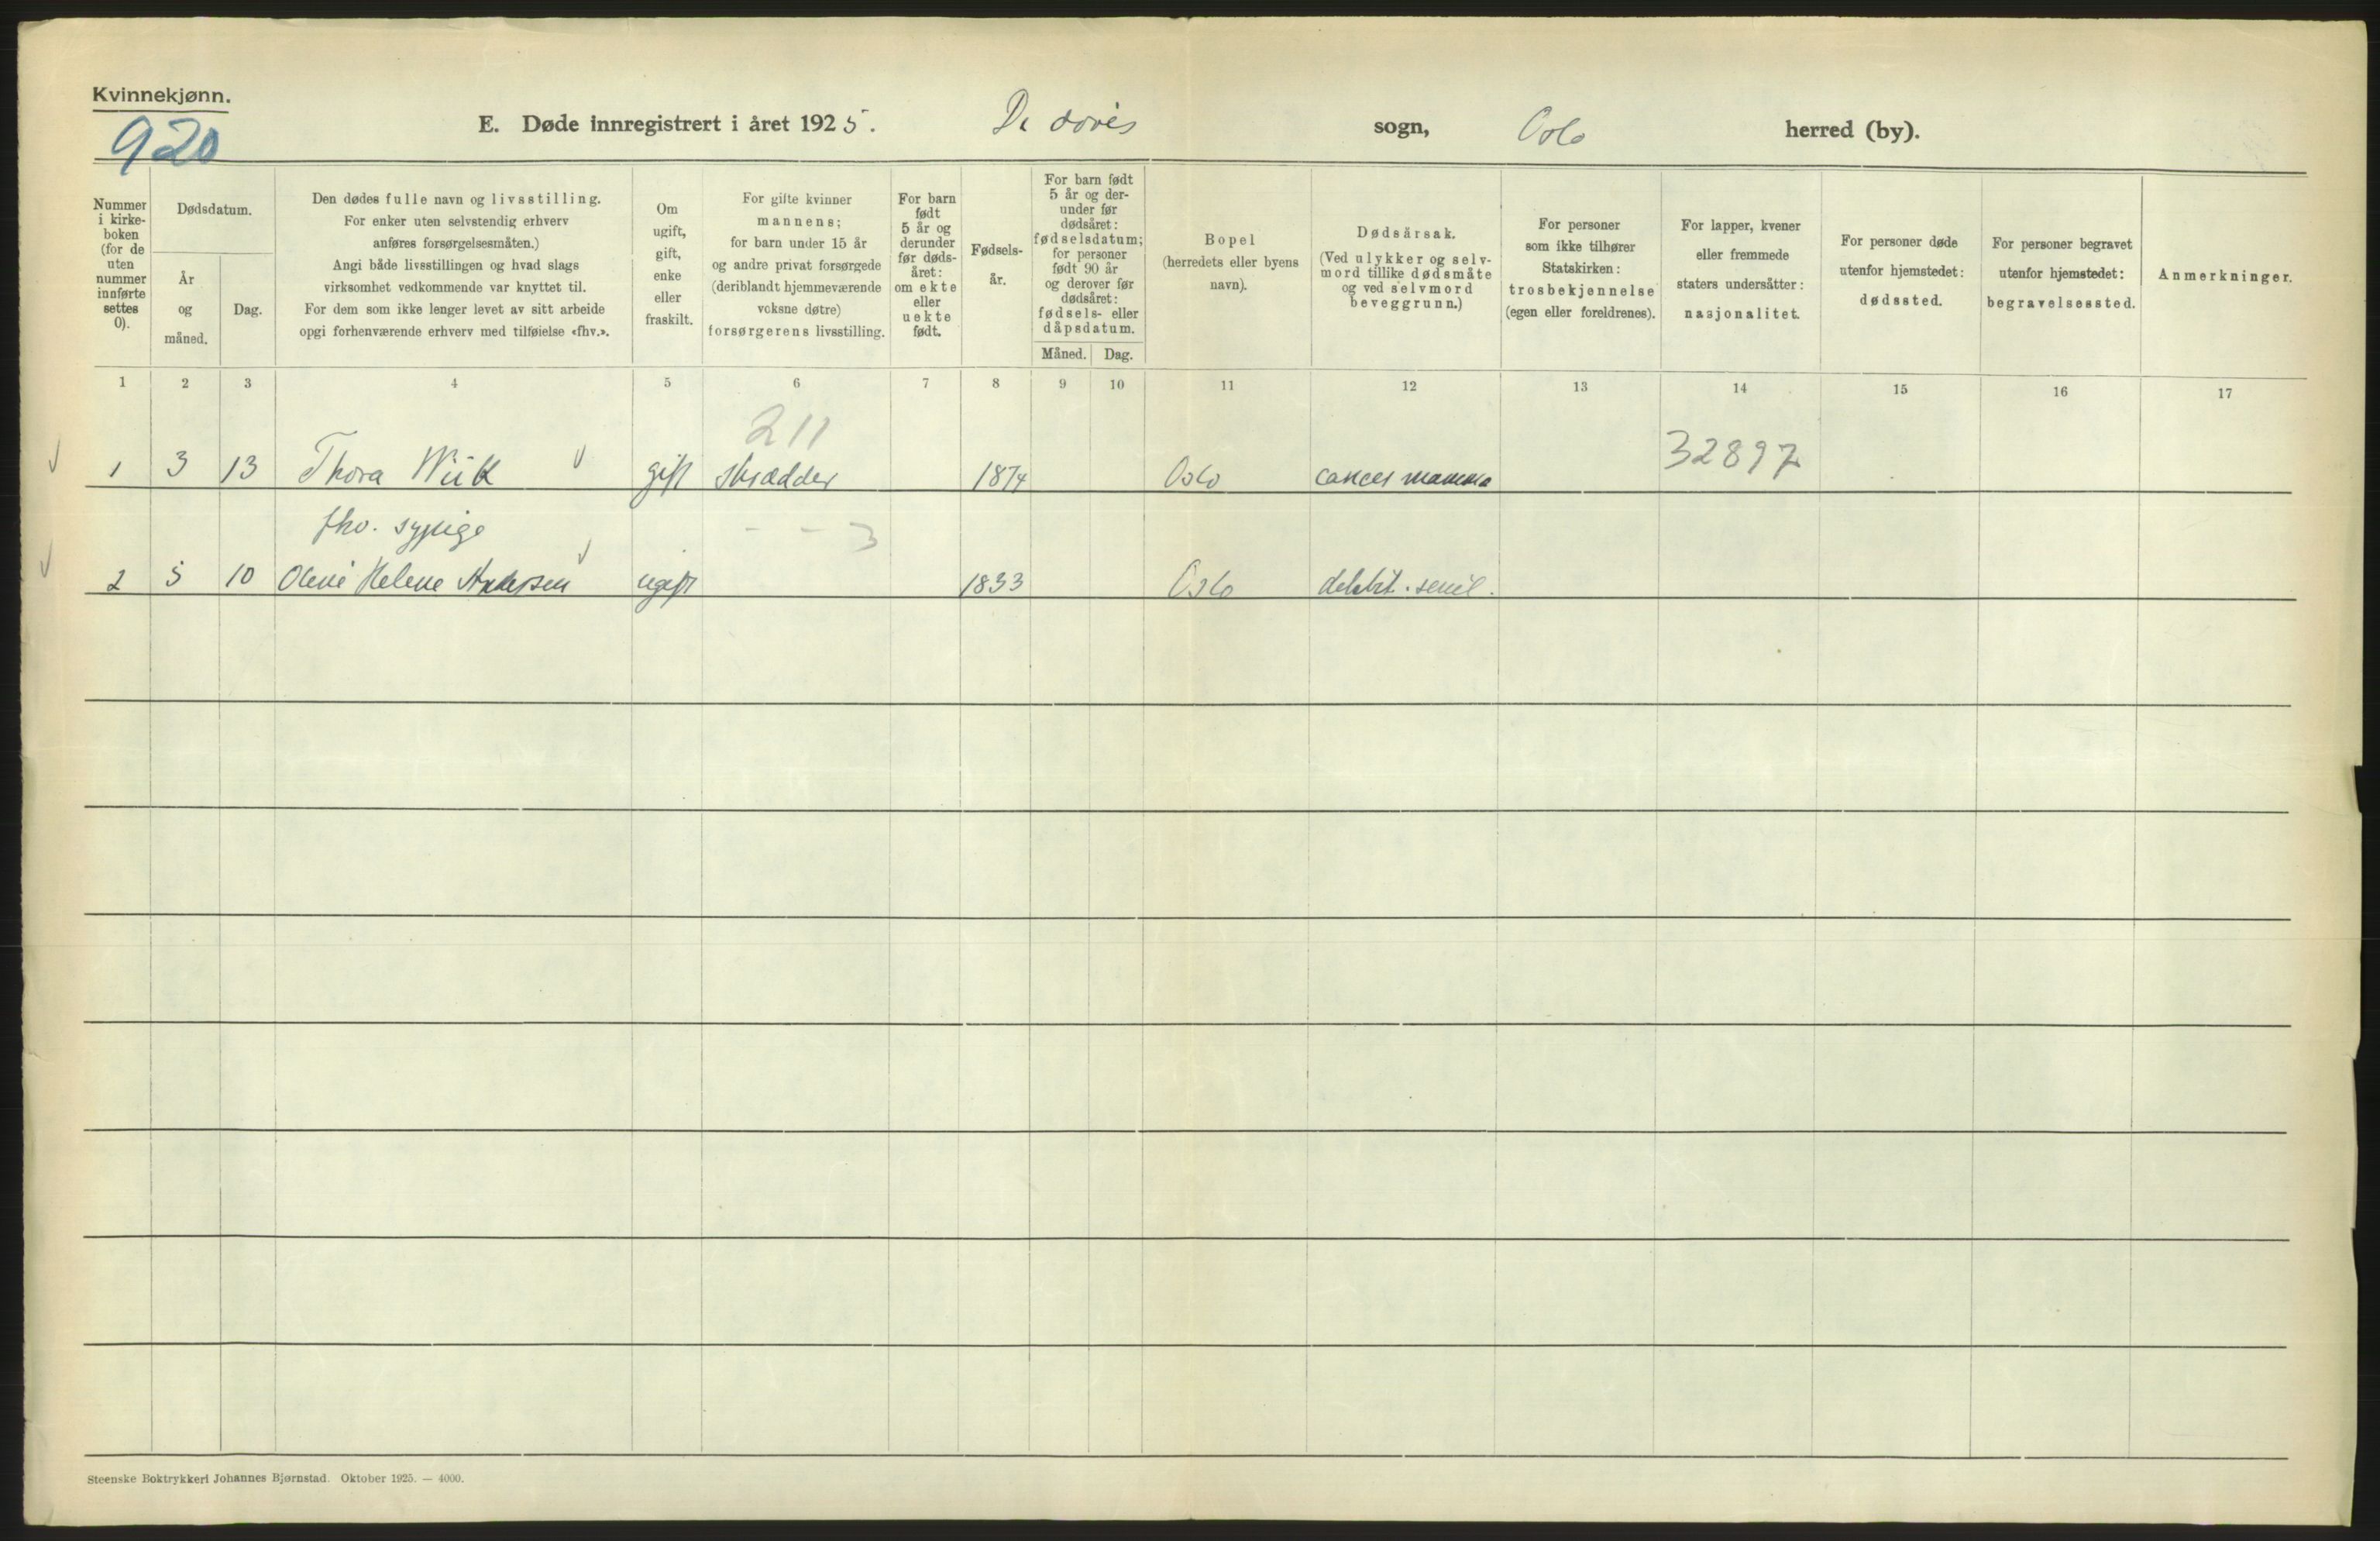 Kvinnekjønn.
920
E. Døde innregistrert i året 1925. De døves sogn, Oslo herred (by).
Nummer i kirke- boken (for de uten nummer innførte settes 0).
Dødsdatum.
År og måned.
Dag.
Den dødes fulle navn og livsstilling.
For enker uten selvstendig erhverv
anføres forsørgelsesmåten.)
Angi både livsstillingen og hvad slags
virksomhet vedkommende var knyttet til.
For dem som ikke lenger levet av sitt arbeide
opgi forhenværende erhverv med tilføielse «fhv.».
Om ugift, gift, enke eller fraskilt.
For gifte kvinner
mannens;
for barn under 15 år
og andre privat forsørgede
(deriblandt hjemmeværende
voksne døtre)
forsørgerens livsstilling.
For barn født 5 år og derunder før døds- året: om ekte eller uekte født.
Fødsels- år.
For barn født
5 år og der-
under før
dødsåret:
fødselsdatum;
for personer
født 90 år
og derover før
dødsåret:
fødsels- eller
dåpsdatum.
Måned. Dag.
Bopel
(herredets eller byens
navn).
Dødsårsak.
(Ved ulykker og selv-
mord tillike dødsmåte
og ved selvmord
beveggrunn.)
For personer
som ikke tilhører
Statskirken:
trosbekjennelse
(egen eller foreldrenes).
For lapper, kvener
eller fremmede
staters undersåtter:
nasjonalitet.
For personer døde
utenfor hjemstedet:
dødssted.
For personer begravet
utenfor hjemstedet:
begravelsessted.
Anmerkninger.
1 2 3 4 5 6 7 8 9 10 11 12 13 14 15 16 17
211
1 3 13 Thora Wiik gift skrædder 1874 Oslo cancer mamma 32897
fhv. sypige - - 3
2 5 10 Oleve Helene Andersen ugift 1833 Oslo debilit. senil.
Steenske Boktrykkeri Johannes Bjørnstad. Oktober 1925. — 4000.